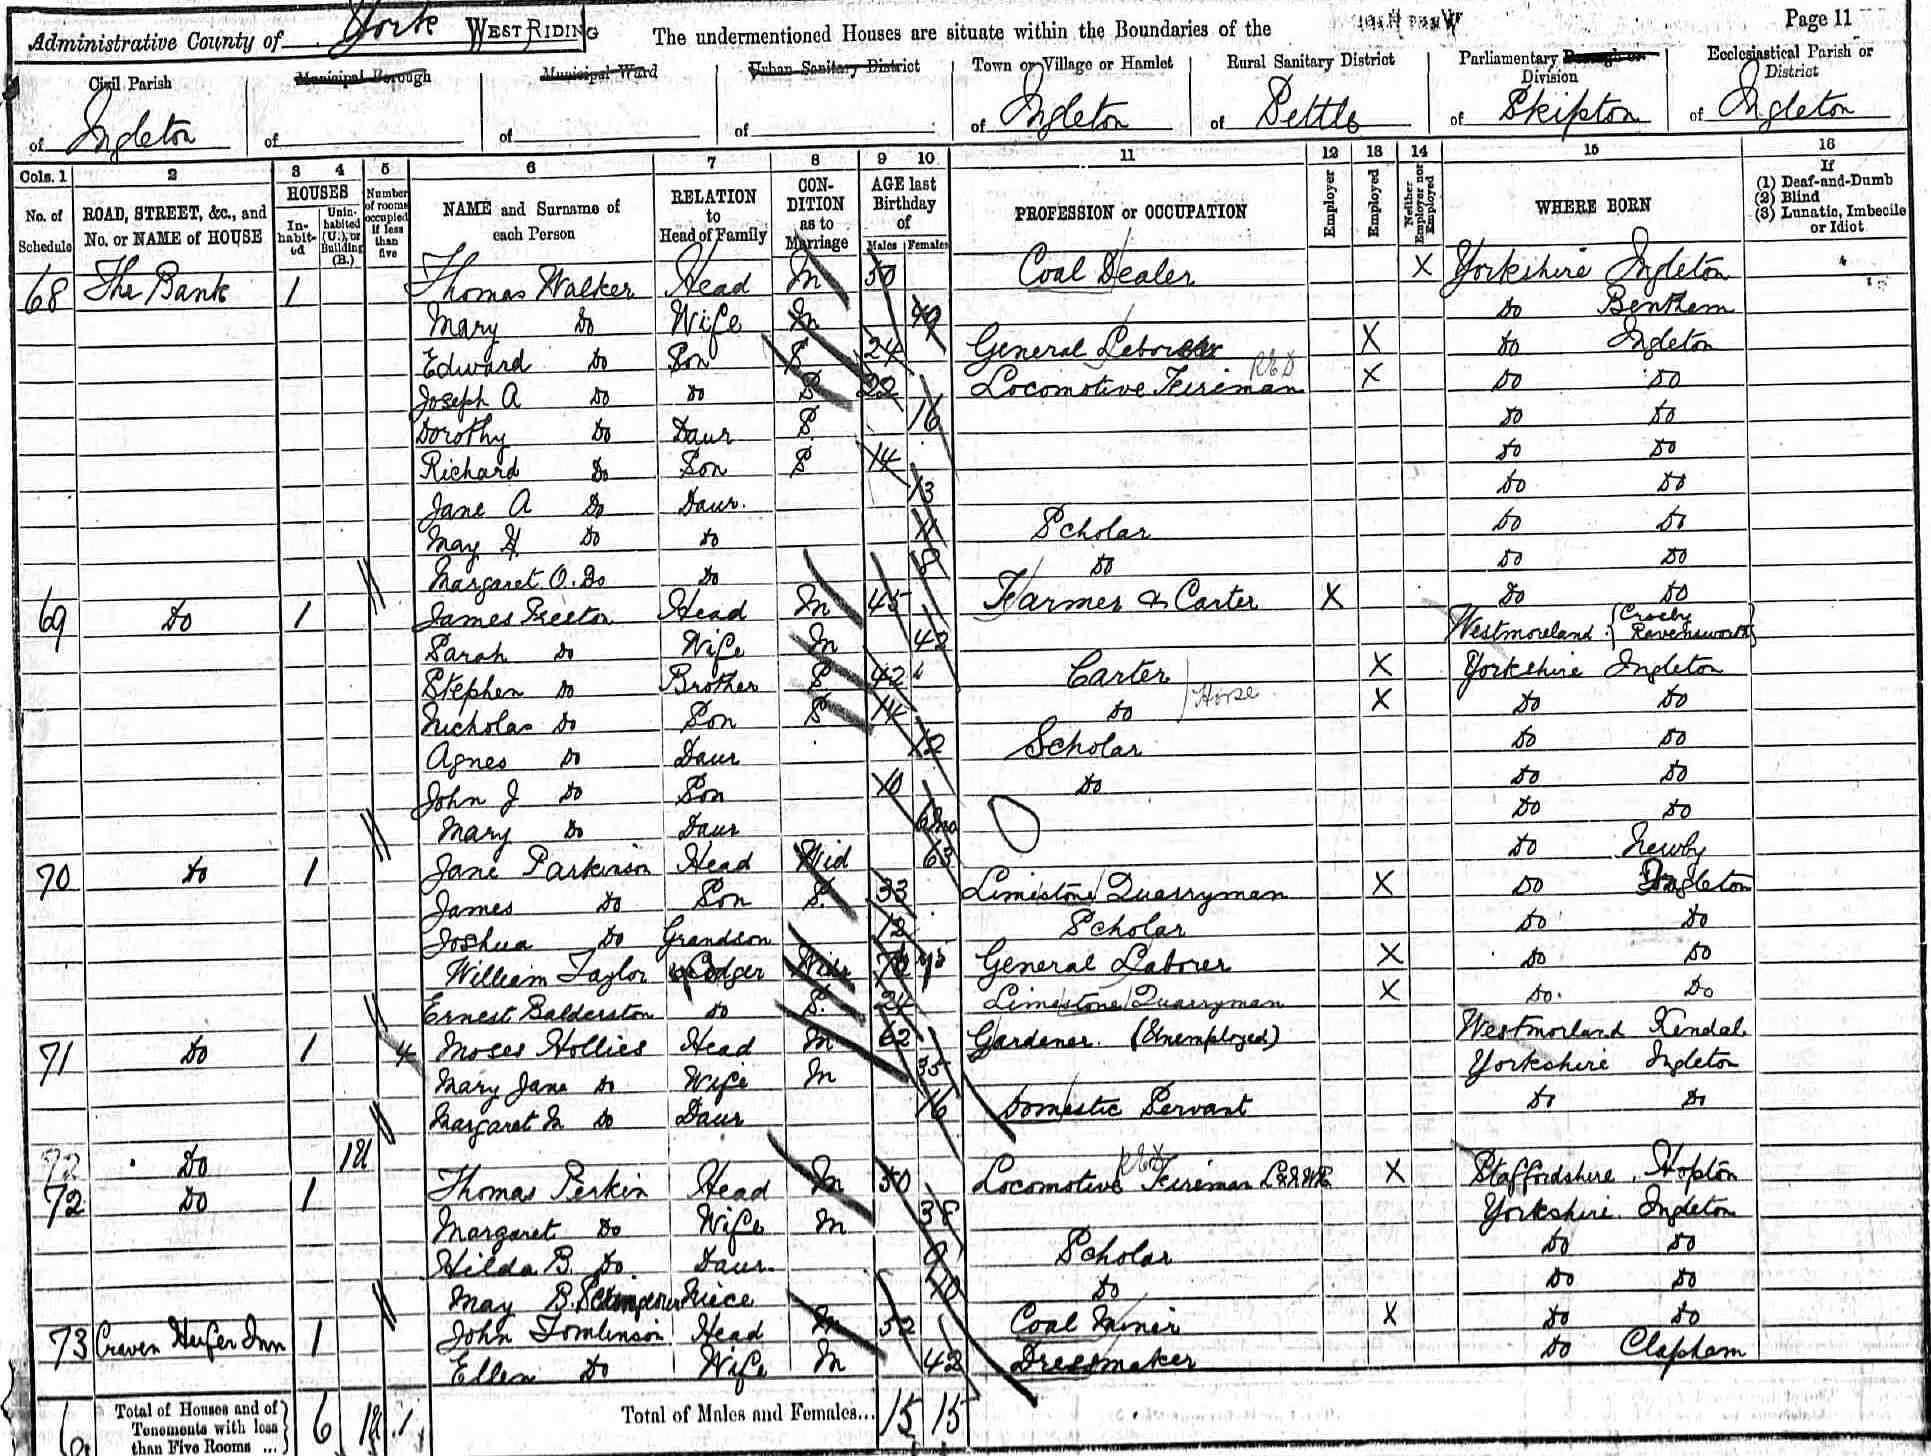 Administrative County of York WEST RIDING The undermentioned Houses are situate within the Boundaries of the Page 11
Civil Parish Municipal Borough Municipal Ward Urban Sanitary District Town or Village or Hamlet Rural Sanitary District Parliamentary Borough or Division Ecclesiastical Parish or District
of Ingleton of of of of Ingleton of Settle of Skipton of Ingleton
Cols. 1 2 3 4 5 6 7 8 9 10 11 12 13 14 15 16
No. of Schedule ROAD, STREET, &c., and No. or NAME of HOUSE HOUSES In-habit-ed Unin-habited (U.), or Building (B.) Number of rooms occupied if less than five NAME and Surname of each Person RELATION to Head of Family CON-DITION as to Marriage AGE last Birthday of Males Females PROFESSION or OCCUPATION Employer Employed Neither Employer nor Employed WHERE BORN If (1) Deaf-and-Dumb (2) Blind (3) Lunatic, Imbecile or Idiot
68 The Bank 1 Thomas Walker Head M 50 Coal Dealer X Yorkshire Ingleton
Mary Do Wife M 49 Do Bentham
Edward Do Son S 24 General Laborer X Do Ingleton
Joseph A Do Do S 22 Locomotive Fireman X Do Do
Dorothy Do Daur S 16 Do Do
Richard Do Son S 14 Do Do
Jane A Do Daur. 13 Do Do
May H Do Do 11 Scholar Do Do
Margaret O. Do Do 8 Do Do Do
69 Do 1 James Do Head M 45 Farmer & Carter X Do Do
Sarah Do Wife M 42 Westmoreland {Crosby Ravensworth}
Stephen Do Brother S 42 Carter X Yorkshire Ingleton
Nicholas Do Son S 14 Do Horse X Do Do
Agnes Do Daur 12 Scholar Do Do
John J Do Son 10 Do Do Do
Mary Do Daur 6mo Do Do
70 Do 1 Jane Parkinson Head Wid 63 Do Newby
James Do Son S. 33 Limestone Quarryman X Do Ingleton
Joshua Do Grandson 12 Scholar Do Do
William Taylor Lodger Widr General Laborer X Do Do
Ernest Balderston Do S. 24 Limestone Quarryman X Do. Do
71 Do 1 4 Moses Hollies Head M 62 Gardener. (Unemployed) Westmorland Kendal
Mary Jane Do Wife M 35 Yorkshire Ingleton
Margaret M Do Daur 16 Domestic Servant Do Do
72 Do 1U
72 Do 1 Thomas Perkin Head M 30 Locomotive Fireman X Staffordshire Hopton
Margaret Do Wife M 38 Yorkshire. Ingleton
Hilda B. Do. Daur. 9 Scholar Do Do
May B. Niece 10 Do Do Do
73 Craven Heifer Inn 1 John Tomlinson Head M 52 Coal Miner X Do Do
Ellen Do Wife M 42 Dressmaker Do Clapham
6 Total of Houses and of Tenements with less than Five Rooms ... 6 1U 1 Total of Males and Females... 15 15